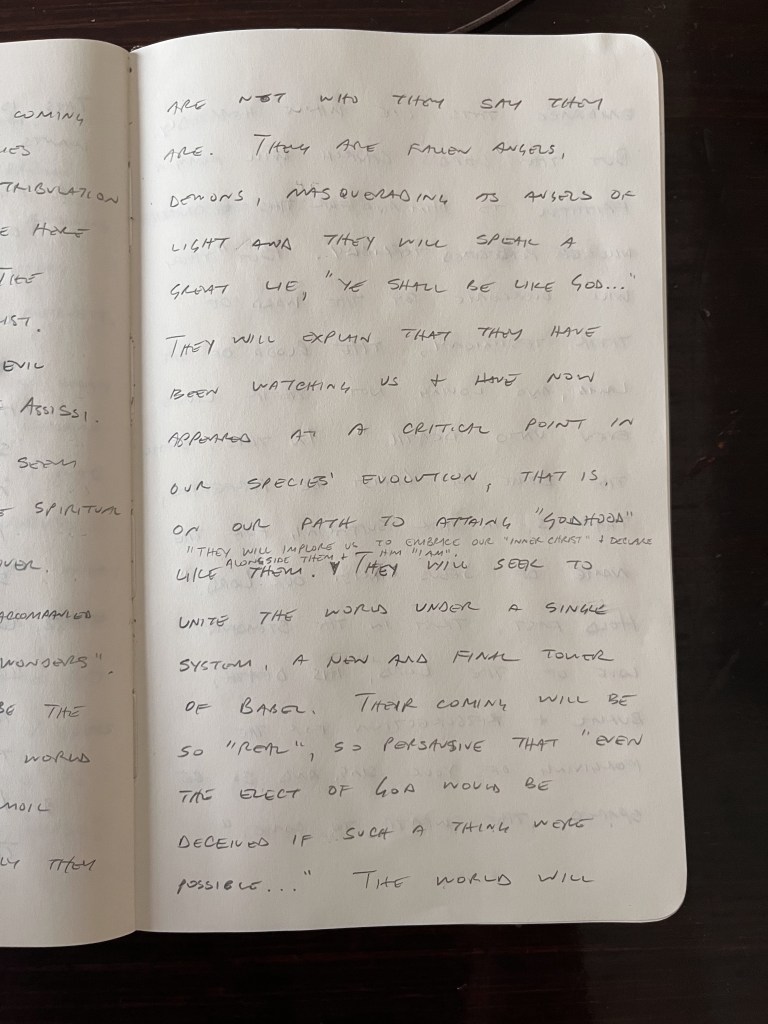 COMING
TRIBULATION
HERE
THE
EVIL
ASSISI.
SEEM
SPIRITUAL
ACCOMPANIED
WONDERS".
THE
WORLD
THEY
ARE NOT WHO THEY SAY THEY
ARE. THEY ARE FALLEN ANGELS,
DEMONS, MASQUERADING AS ANGELS OF
LIGHT AND THEY WILL SPEAK A
GREAT LIE, "YE SHALL BE LIKE GOD..."
THEY WILL EXPLAIN THAT THEY HAVE
BEEN WATCHING US + HAVE NOW
APPEARED AT A CRITICAL POINT IN
OUR SPECIES' EVOLUTION, THAT IS,
ON OUR PATH TO ATTAING "GODHOOD"
"THEY WILL IMPLORE US TO EMBRACE OUR "INNER CHRIST" + DECLARE
ALONGSIDE THEM + HIM "I AM".
LIKE THEM. THEY WILL SEEK TO
UNITE THE WORLD UNDER A SINGLE
SYSTEM, A NEW AND FINAL TOWER
OF BABEL. THEIR COMING WILL BE
SO "REAL", SO PERSAUSIVE THAT "EVEN
THE ELECT OF GOD WOULD BE
DECEIVED IF SUCH A THING WERE
POSSIBLE..." THE WORLD WILL